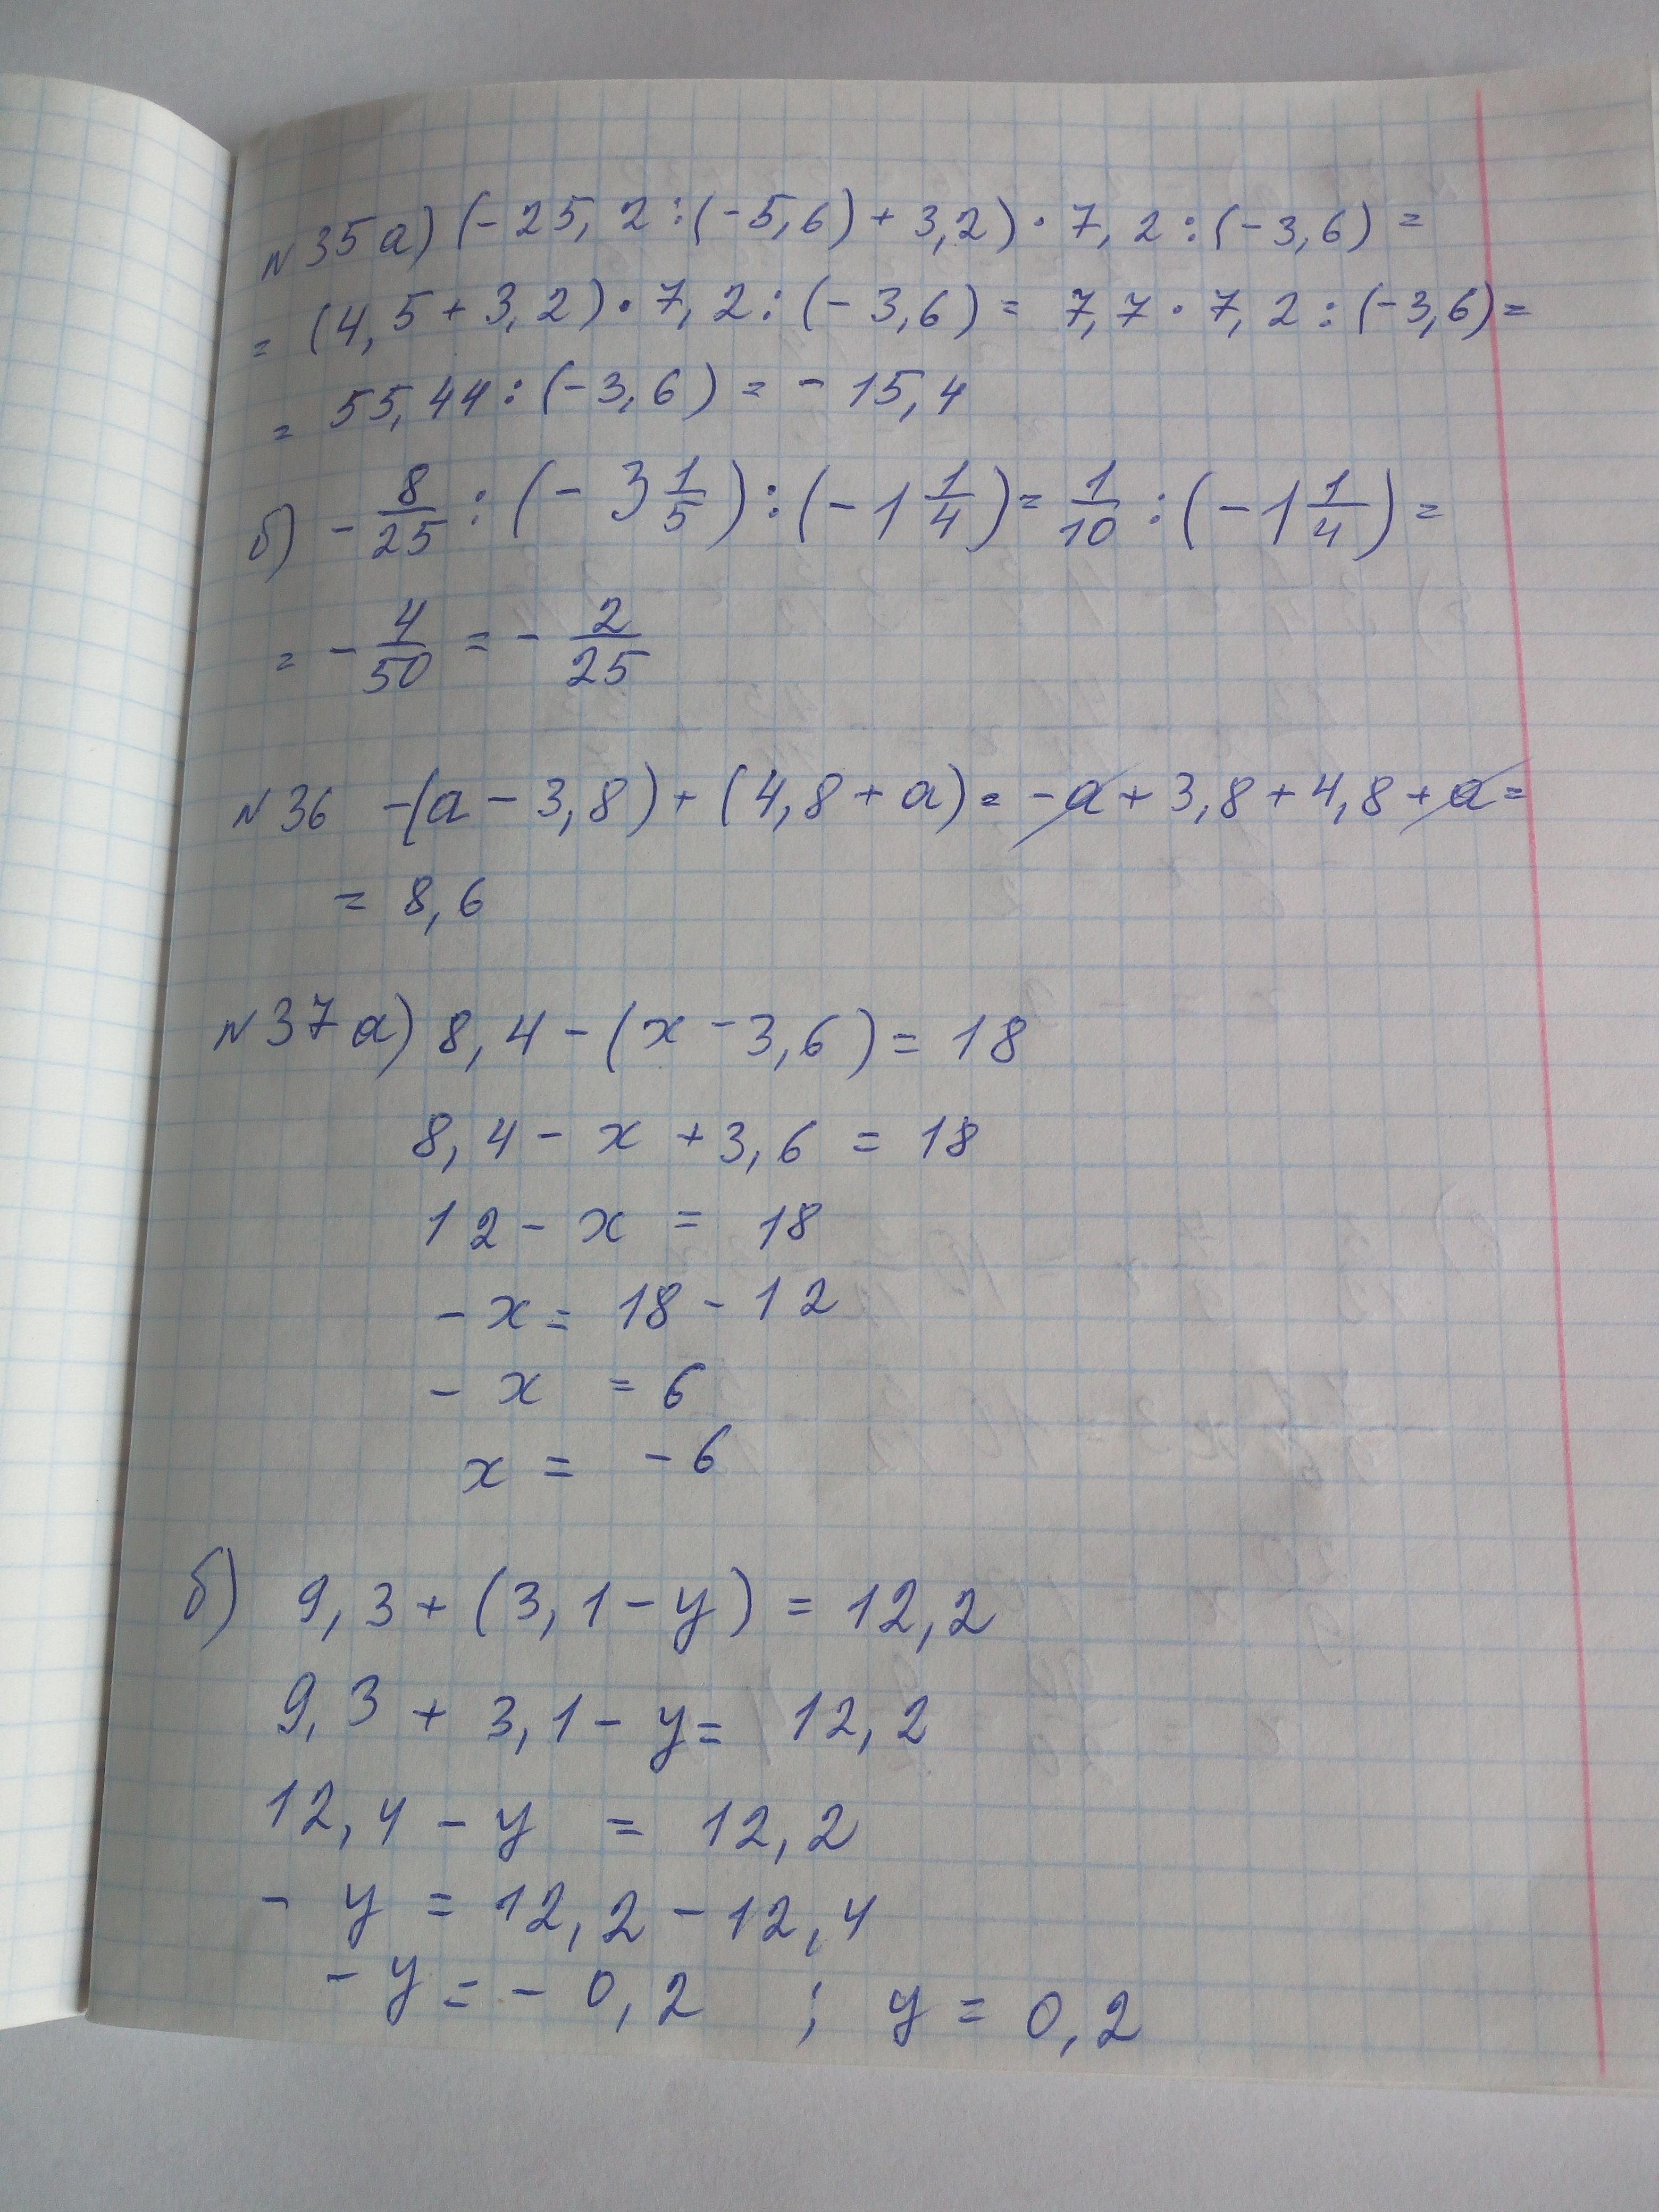 №35 а) (-25,2:(-5,6)+3,2)·7,2:(-3,6)=
= (4,5+3,2)·7,2:(-3,6)= 7,7·7,2:(-3,6)=
= 55,44:(-3,6)= -15,4
б) -8/25:(-3 1/5):(-1 1/4)= 1/10:(-1 1/4)=
= -4/50 = -2/25
№36 -(a-3,8)+(4,8+a)= -a+3,8+4,8+a=
= 8,6
№37 а) 8,4-(x-3,6)= 18
8,4-x+3,6 = 18
12-x = 18
-x= 18-12
-x = 6
x = -6
б) 9,3+(3,1-y)= 12,2
9,3+3,1-y= 12,2
12,4-y = 12,2
-y = 12,2-12,4
-y = -0,2 ; y = 0,2